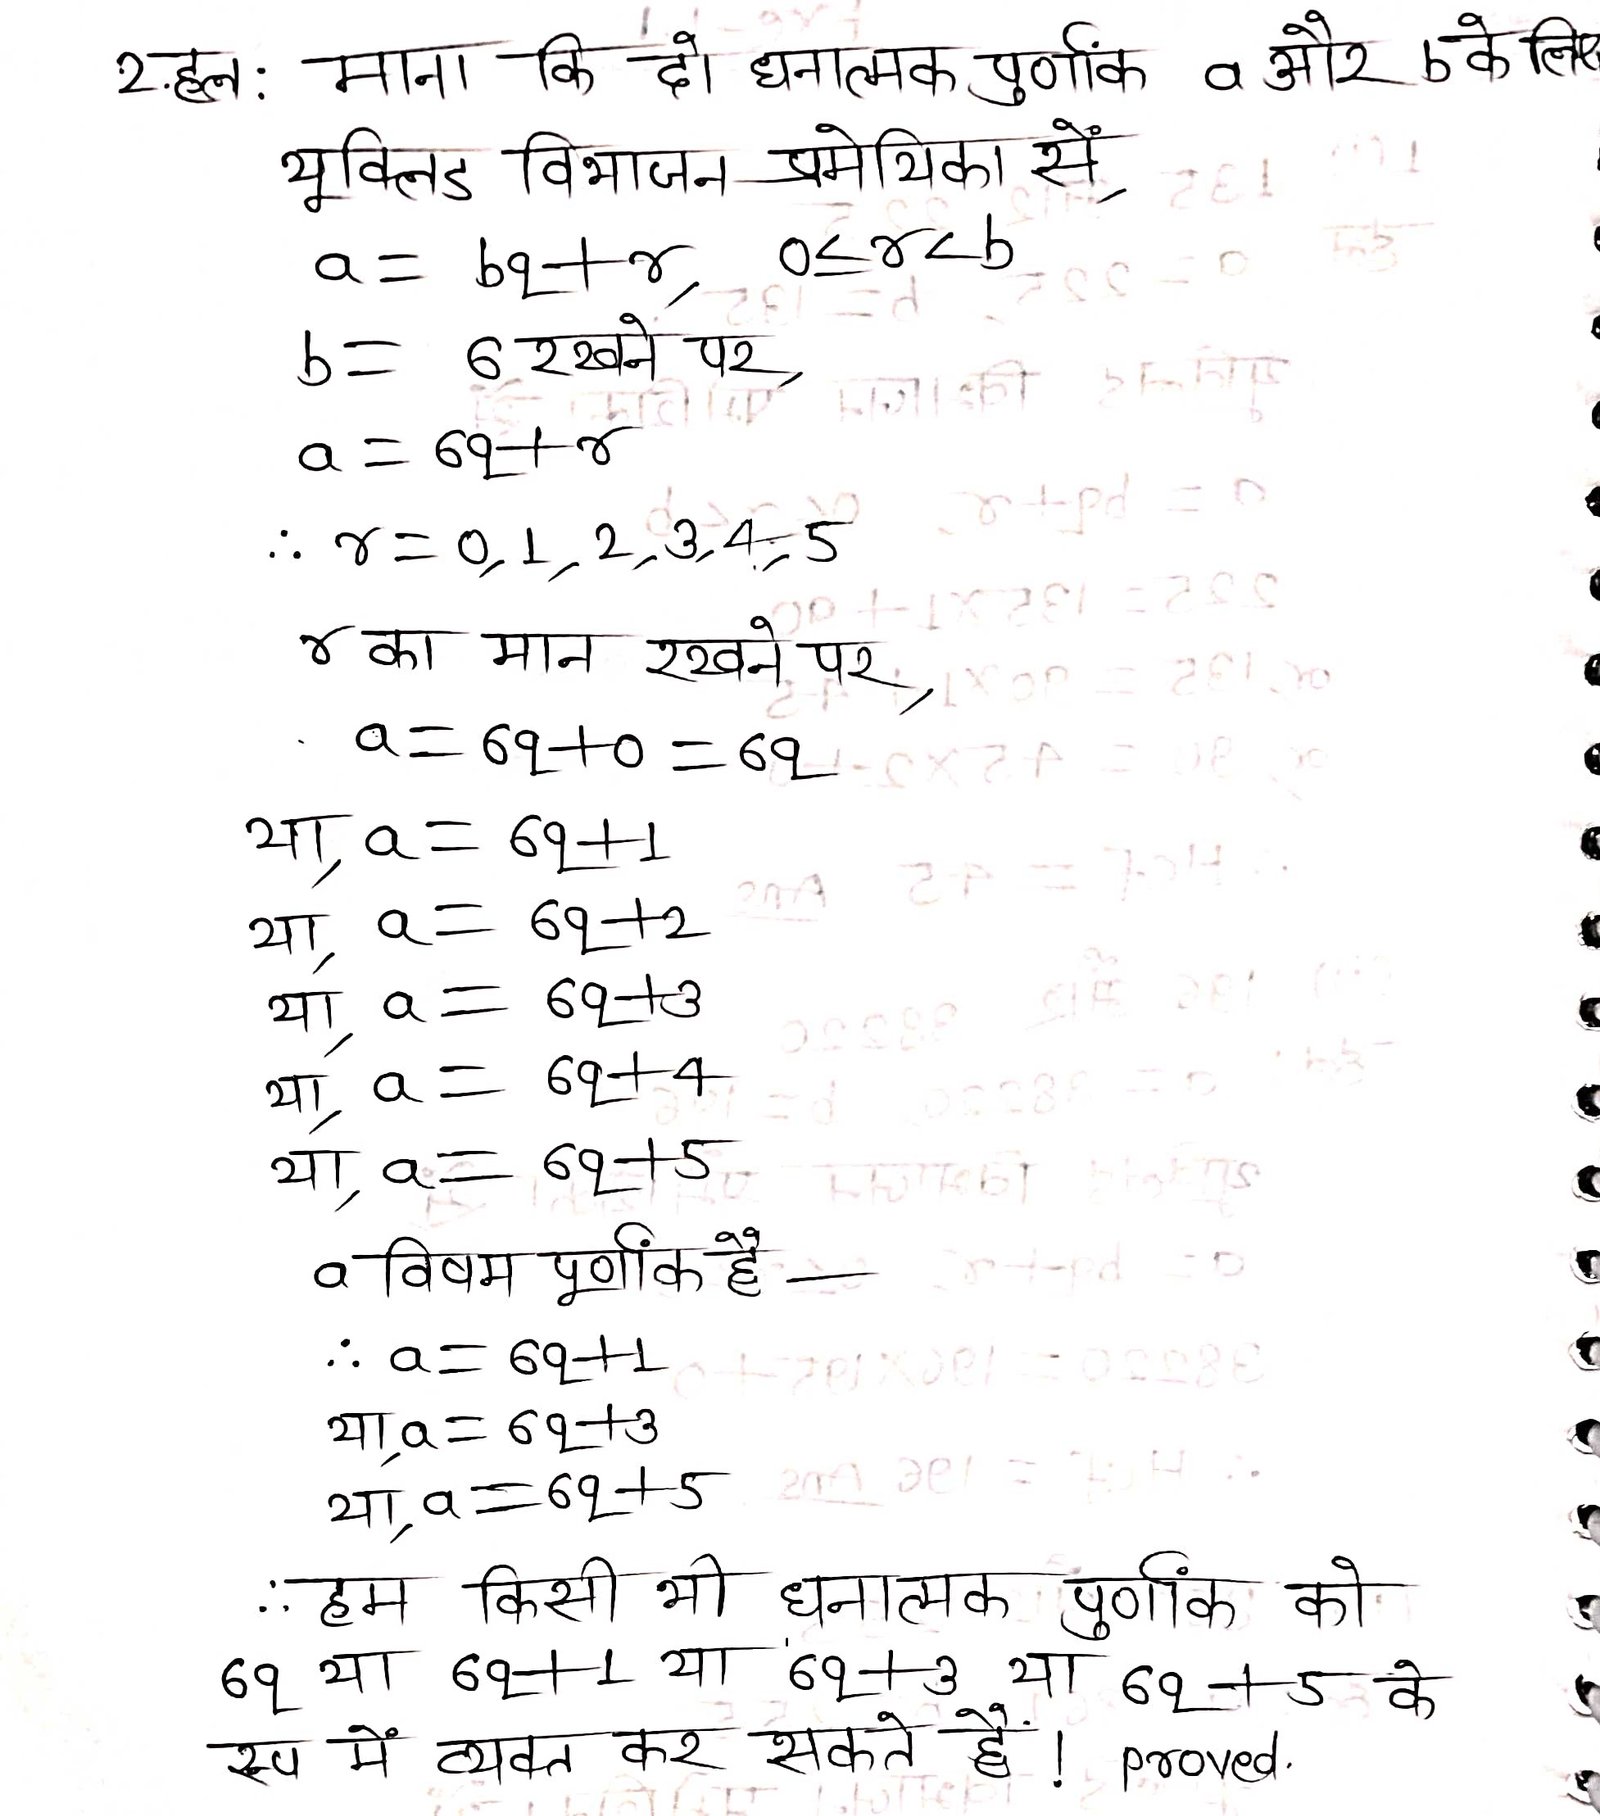 2.हल: माना कि दो धनात्मक पुर्णांक a और b के लिए
यूक्लिड विभाजन प्रमेयिका सें,
a = bq+r, 0≤r<b
b = 6 रखने पर,
a = 6q+r
∴ r = 0, 1, 2, 3, 4, 5
r का मान रखने पर,
a = 6q+0 = 6q
या, a = 6q+1
या, a = 6q+2
या, a = 6q+3
या, a = 6q+4
या, a = 6q+5
a विषम पूर्णांक है —
∴ a = 6q+1
या, a = 6q+3
या, a = 6q+5
∴ हम किसी भी धनात्मक पुर्णांक को
6q या 6q+1 या 6q+3 या 6q+5 के
रूप में व्यक्त कर सकते हैं! proved.